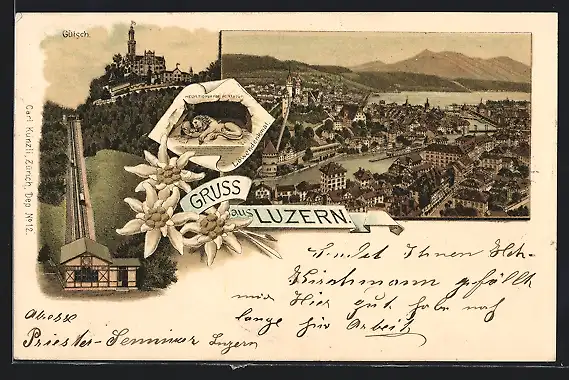 Gütsch.
HELVETIORUM FIDEI AC VIRTUTI
Löwendenkmal
GRUSS
aus LUZERN.
Carl Künzli, Zürich, Dep. No 12.
Sendet Ihnen Hch.
Hirschmann gefällt
mir Hier gut habe noch
lange für Arbeit
Priester-Seminar Luzern